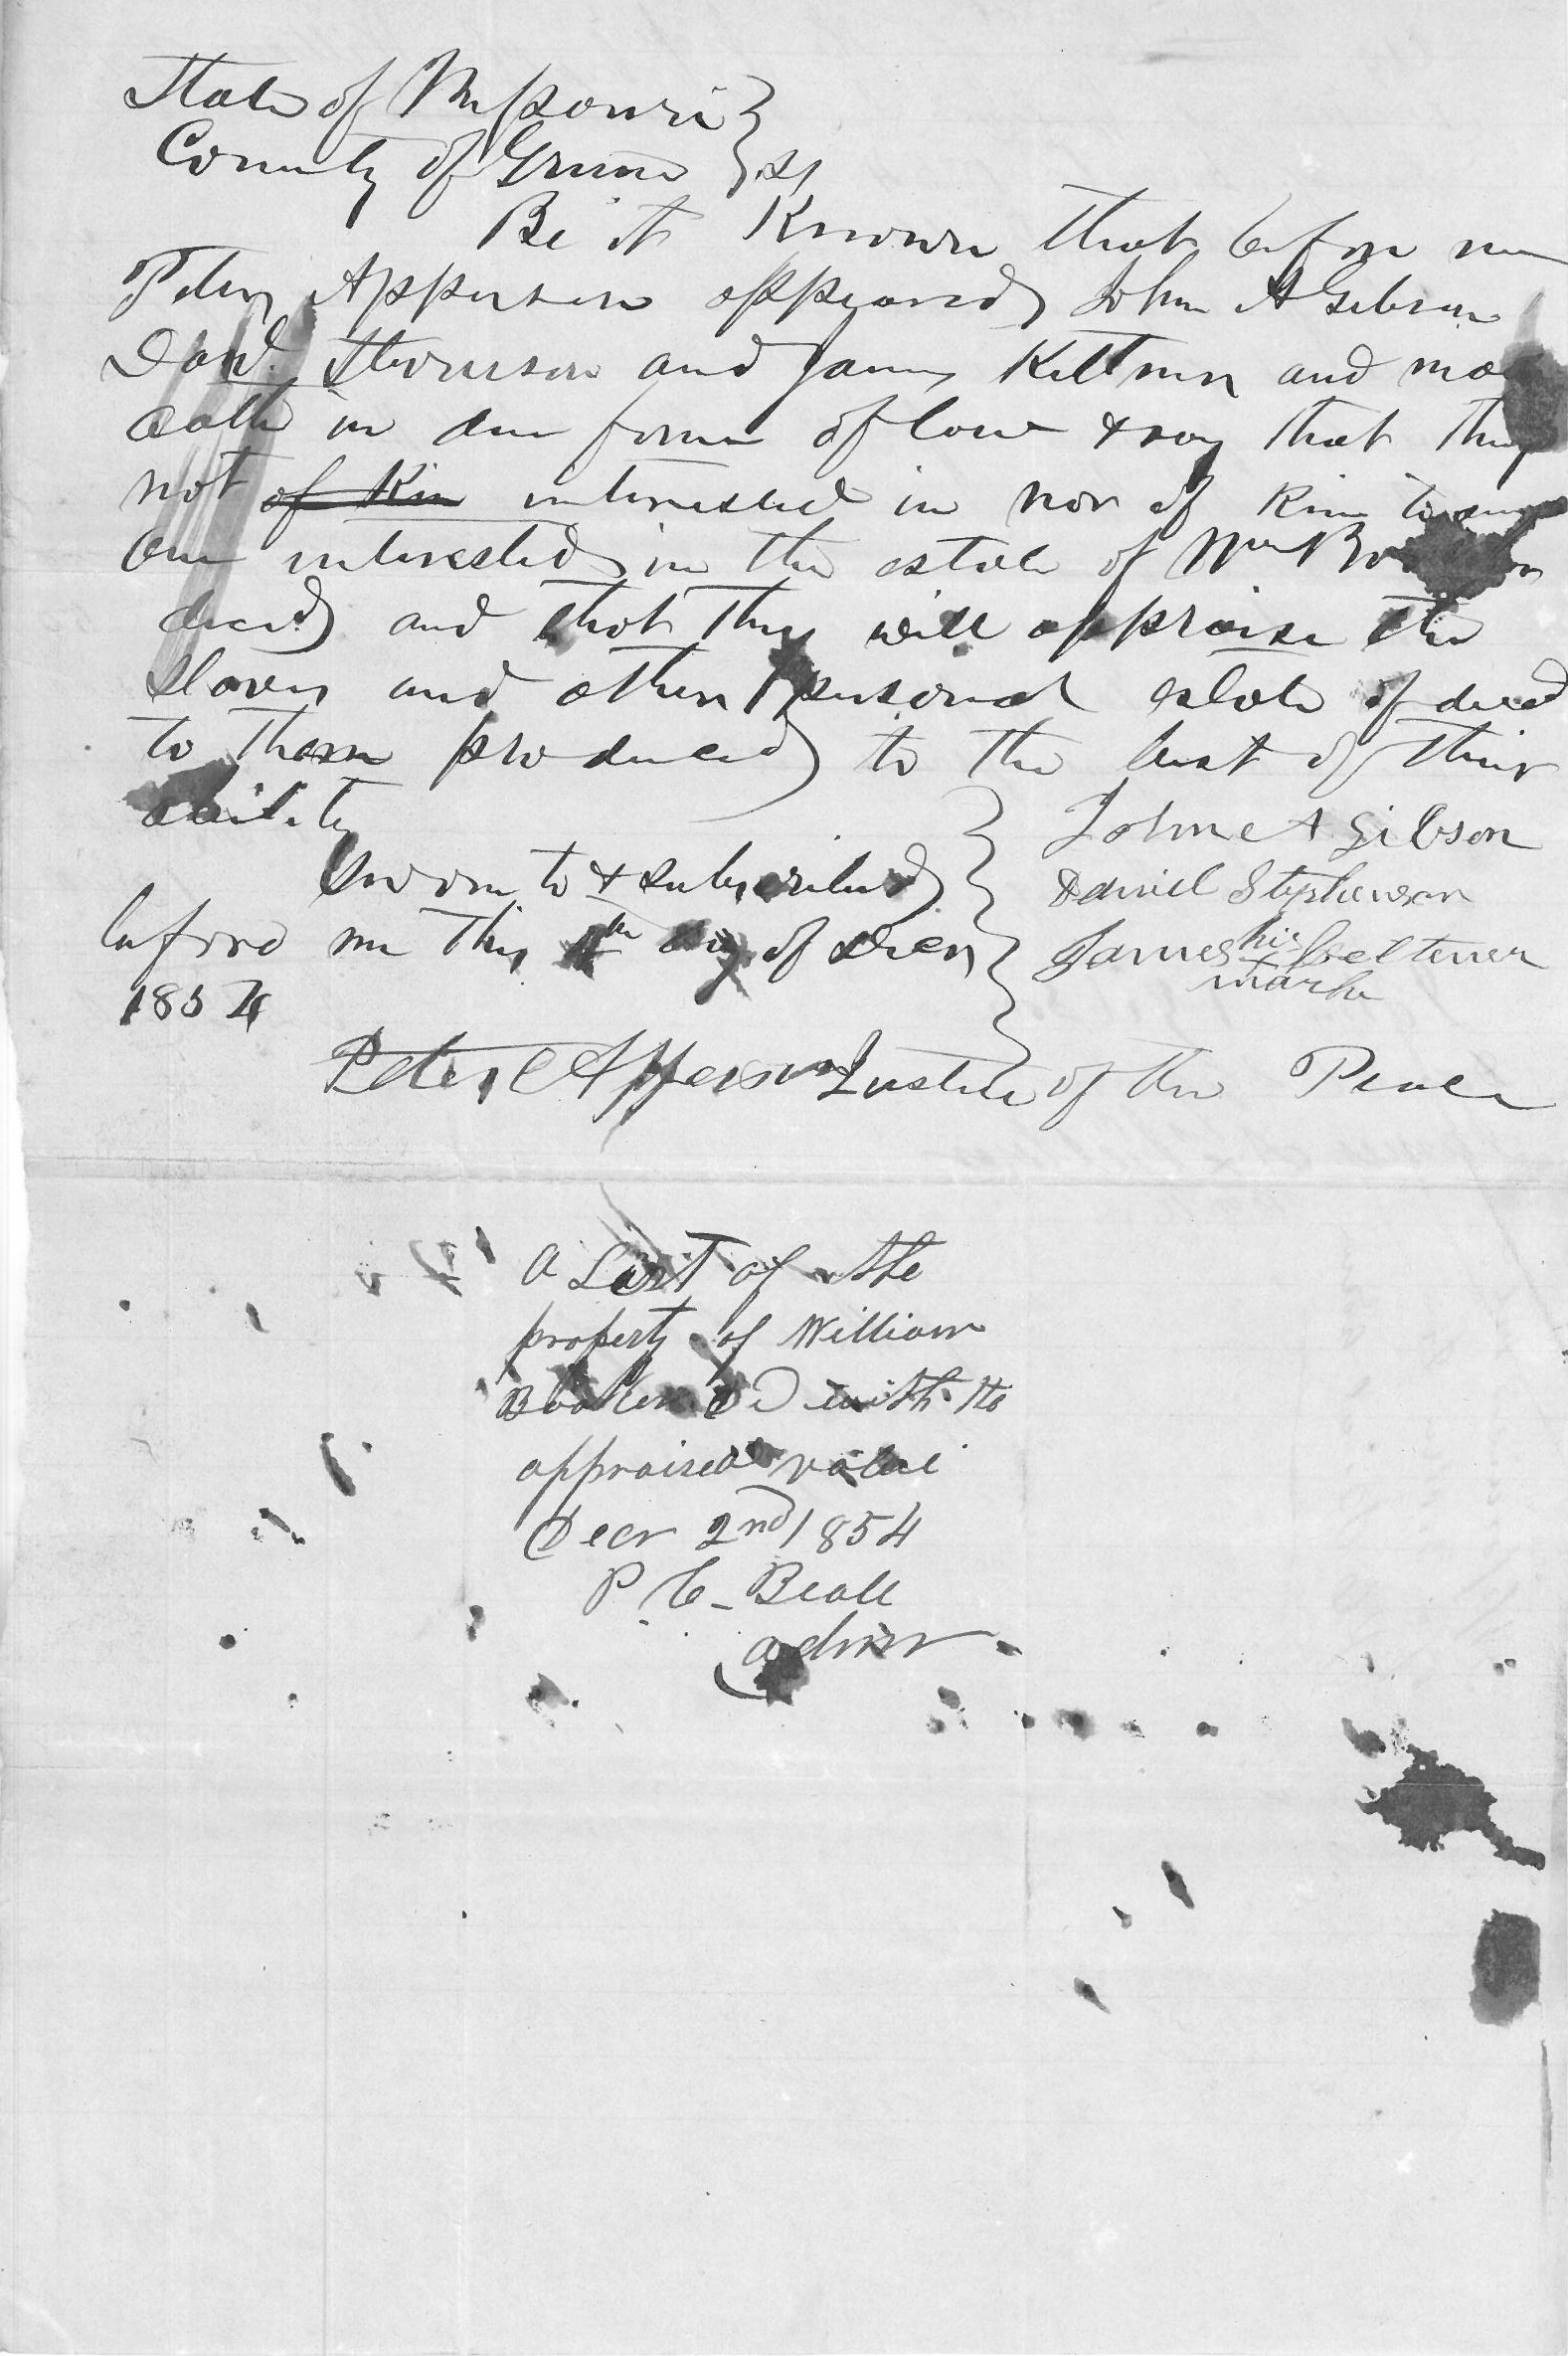 State of Missouri }
County of Greene } ss
Be it Known that before me
Peter Apperson appeared John A Gibson
Danl. Stevenson and James Keltner and made
oath in due form of law & say that they
not of Kin interested in nor of Kin to any
one interested in the estate of Wm
decd and that they will appraise the
slaves and other personal estate of decd
to them produced to the best of their
ability
John A Gibson
Sworn to & subscribed
Daniel Stephenson
before me this 4th day of Decr
James his Celtener
mark
1854
Peter Apperson Justice of the Peace
A List of the
property of William
Booker D with the
appraised value
Decr 2nd 1854
P. C. Beall
admr